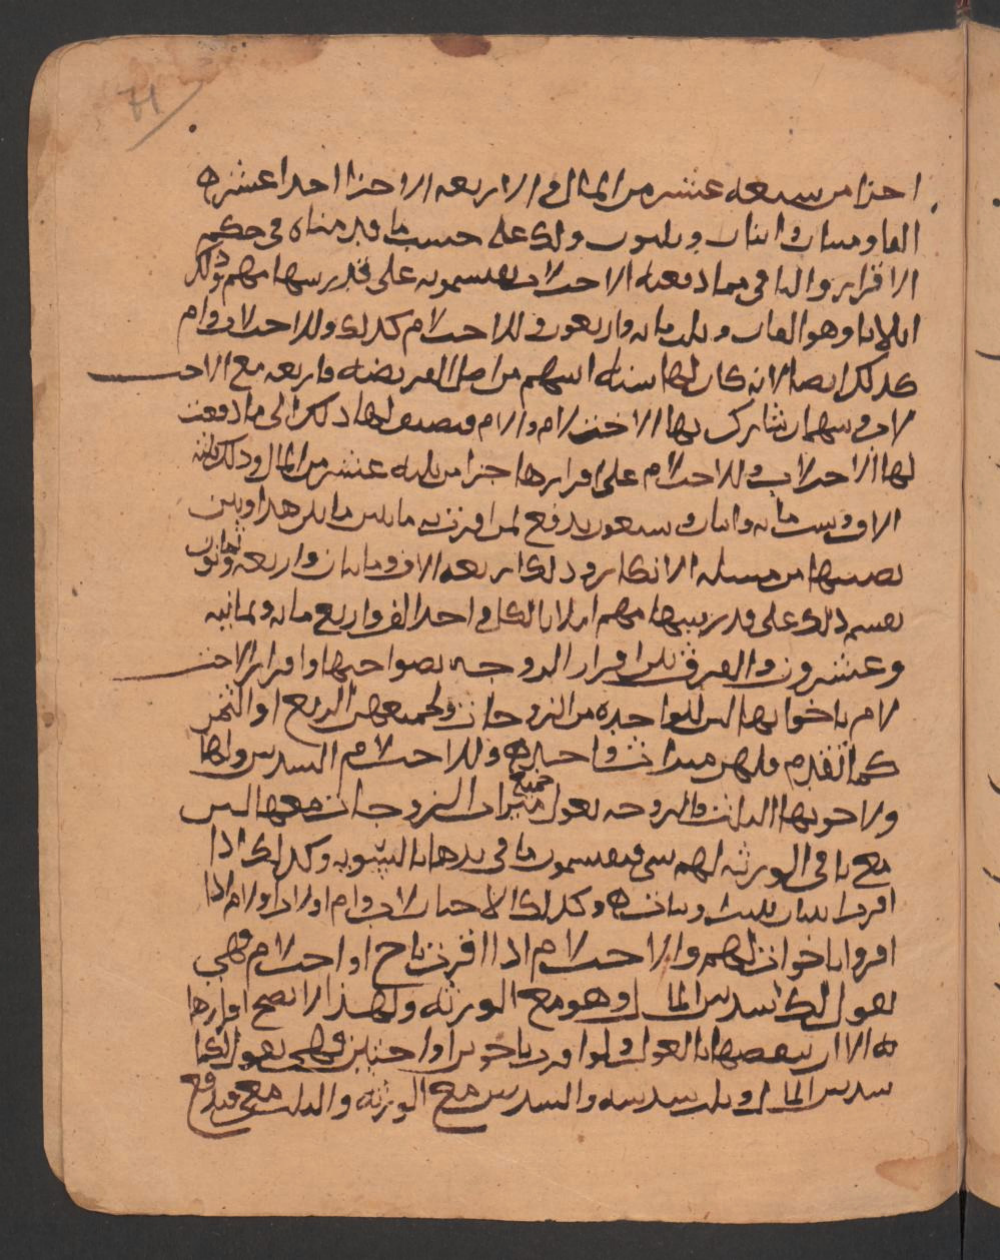 71
احزا من سبعه عشر من المال والاربعه الاحزا احدا عشره
الفا ومسان واثنان وثلثون وذلك على حسب ما قدمناه في حكم
الاقرار والباقي مما دفعته الاخت لاب يقسمونه على قدر سهامهم وذلك
اثلاثا وهو الفان وثلث مائه واربعون وللاخت لام كذلك وللاخت لاب وام
كذلك ايضا لانه كان لها سته اسهم من اصل الفريضه واربعه مع الاخت
لاب وسهمان شارك بها الاخت لام والام فيضيف لها ذلك الى ما دفعت
لها الاخت لاب وللاخت لام على اقرارها جزا من ثلثه عشر من المال وذلك
الاف وست مائه واثنان وسبعون يدفع لمن اقرت به ما بين هذا وبين
نصيبها من مسئله الانكار وذلك اربعه الاف ومايتان واربعه وثمانون
يقسم ذلك على قدر سهامهم اثلاثا لكل واحد الف واربع مائه وثمانيه
وعشرون والفرق بين اقرار الزوجه بصواحبها واقرار الاخت
لام باخواتها ان للواحده من الزوجات ولجميعهن الربع او الثمن
كما تقدم فلهن ميراث واحده وللاخت لام السدس ولها
ولاخوتها الثلث فالزوجه تقول جميع ميراث الزوجات معها ليس
مع باقي الورثه لهم شي فيقسمون ما في يدها بالسويه وكذلك اذا
اقرت ابنتان ببنت وبنات وكذلك الاختان لاب وام او لاب او لام اذا
اقروا باخوات لهم والاخت لام اذا اقرت باخ او اخت لام فهي
تقول لك سدس المال وهو مع الورثه ولهذا لا يصح اقرارها
به الا ان ينقصها بالعول ولو اقرت باخوين او اختين فهي تقول لكما
سدس المال وثلث سدسه والسدس مع الورثه والثلث معي فيدفع